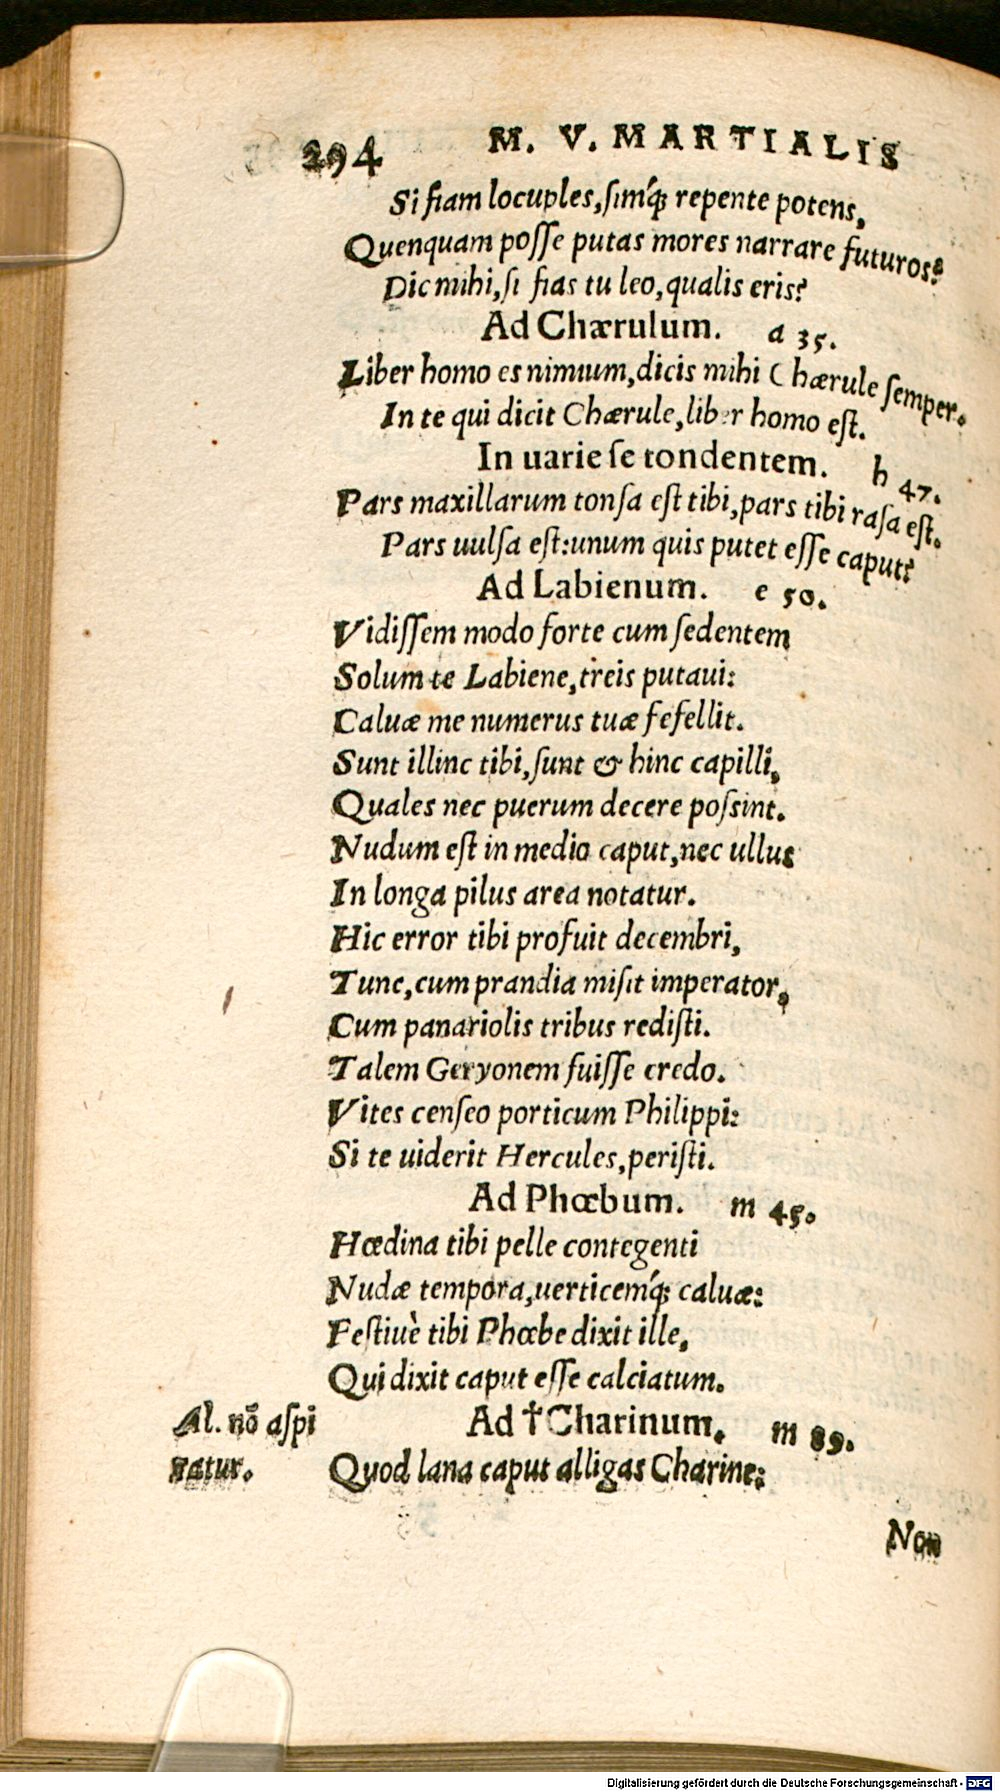 294 M. V. MARTIALIS
Si fiam locuples, simq́; repente potens,
Quenquam posse putas mores narrare futuros?
Dic mihi, si fias tu leo, qualis eris?
Ad Chærulum. a 35.
Liber homo es nimium, dicis mihi Chærule semper.
In te qui dicit Chærule, liber homo est.
In uarie se tondentem. h 47.
Pars maxillarum tonsa est tibi, pars tibi rasa est.
Pars uulsa est: unum quis putet esse caput?
Ad Labienum. e 50.
Vidissem modo forte cum sedentem
Solum te Labiene, treis putaui:
Caluæ me numerus tuæ fefellit.
Sunt illinc tibi, sunt & hinc capilli,
Quales nec puerum decere possint.
Nudum est in medio caput, nec ullus
In longa pilus area notatur.
Hic error tibi profuit decembri,
Tunc, cum prandia misit imperator,
Cum panariolis tribus redisti.
Talem Geryonem fuisse credo.
Vites censeo porticum Philippi:
Si te uiderit Hercules, peristi.
Ad Phœbum. m 45.
Hœdina tibi pelle contegenti
Nudæ tempora, uerticemq́; caluæ:
Festiuè tibi Phœbe dixit ille,
Qui dixit caput esse calciatum.
Ad † Charinum. m 89.
Al. nō aspi
ratur.
Quod lana caput alligas Charine:
Non
Digitalisierung gefördert durch die Deutsche Forschungsgemeinschaft - DFG